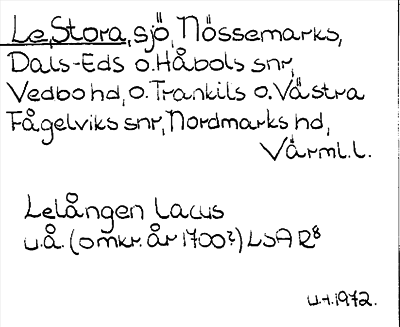 Le, Stora, sjö, Nössemarks,
Dals-Eds o. Håbols snr,
Vedbo hd, o. Trankils o. Västra
Fågelviks snr, Nordmarks hd,
Värml.l.
Lelången lacus
u.å. (omkr. år 1700?) LSA R8
u.t. 1972.